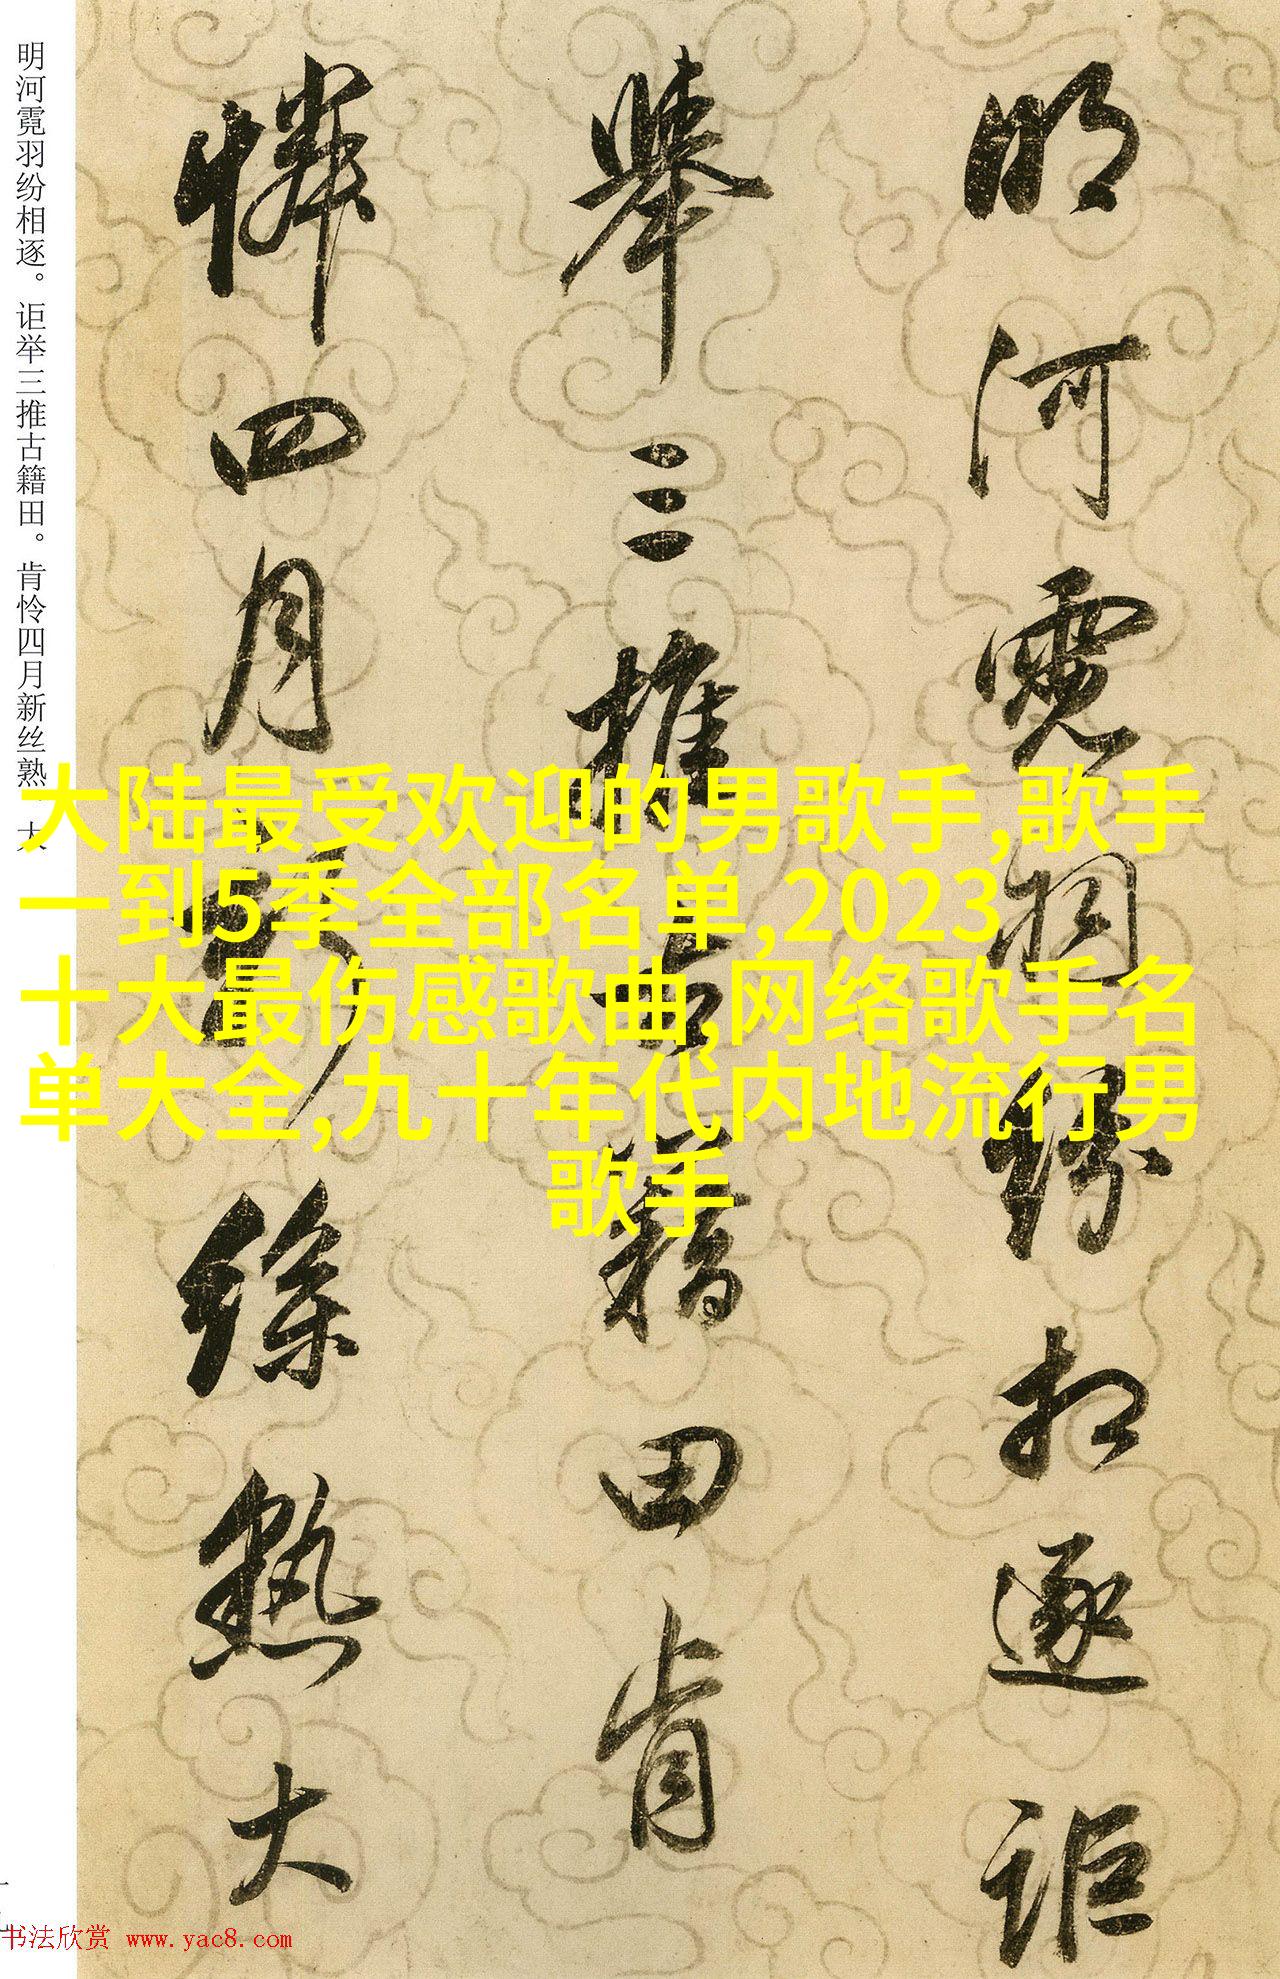 明河霓羽纷相逐。讵举三推古籍田。肯怜四月新丝熟、大
明河霓羽紛相逐詎
舉三推古籍田肯
憐四月新絲熟大
大陆最受欢迎的男歌手,歌手
一到5季全部名单,2023
十大最伤感歌曲,网络歌手名
单大全,九十年代内地流行男
歌手
书法欣赏 www.yac8.com